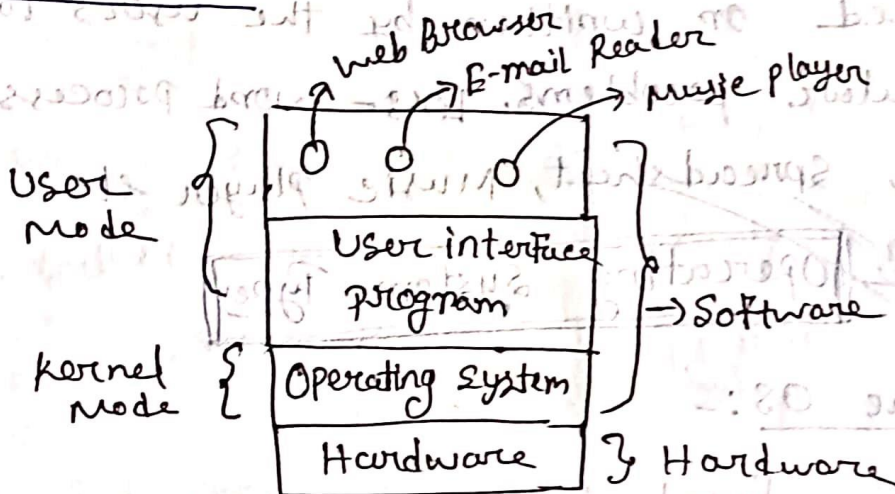 Web Browser
E-mail Reader
Music player
User
Mode
User interface
program
→ Software
kernel
Mode
Operating system
Hardware
Hardware